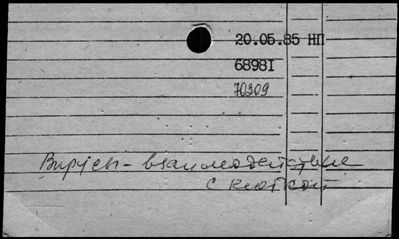 20.05.85 НП
68981
70309
Вирусы - взаимодействие
с клеткой